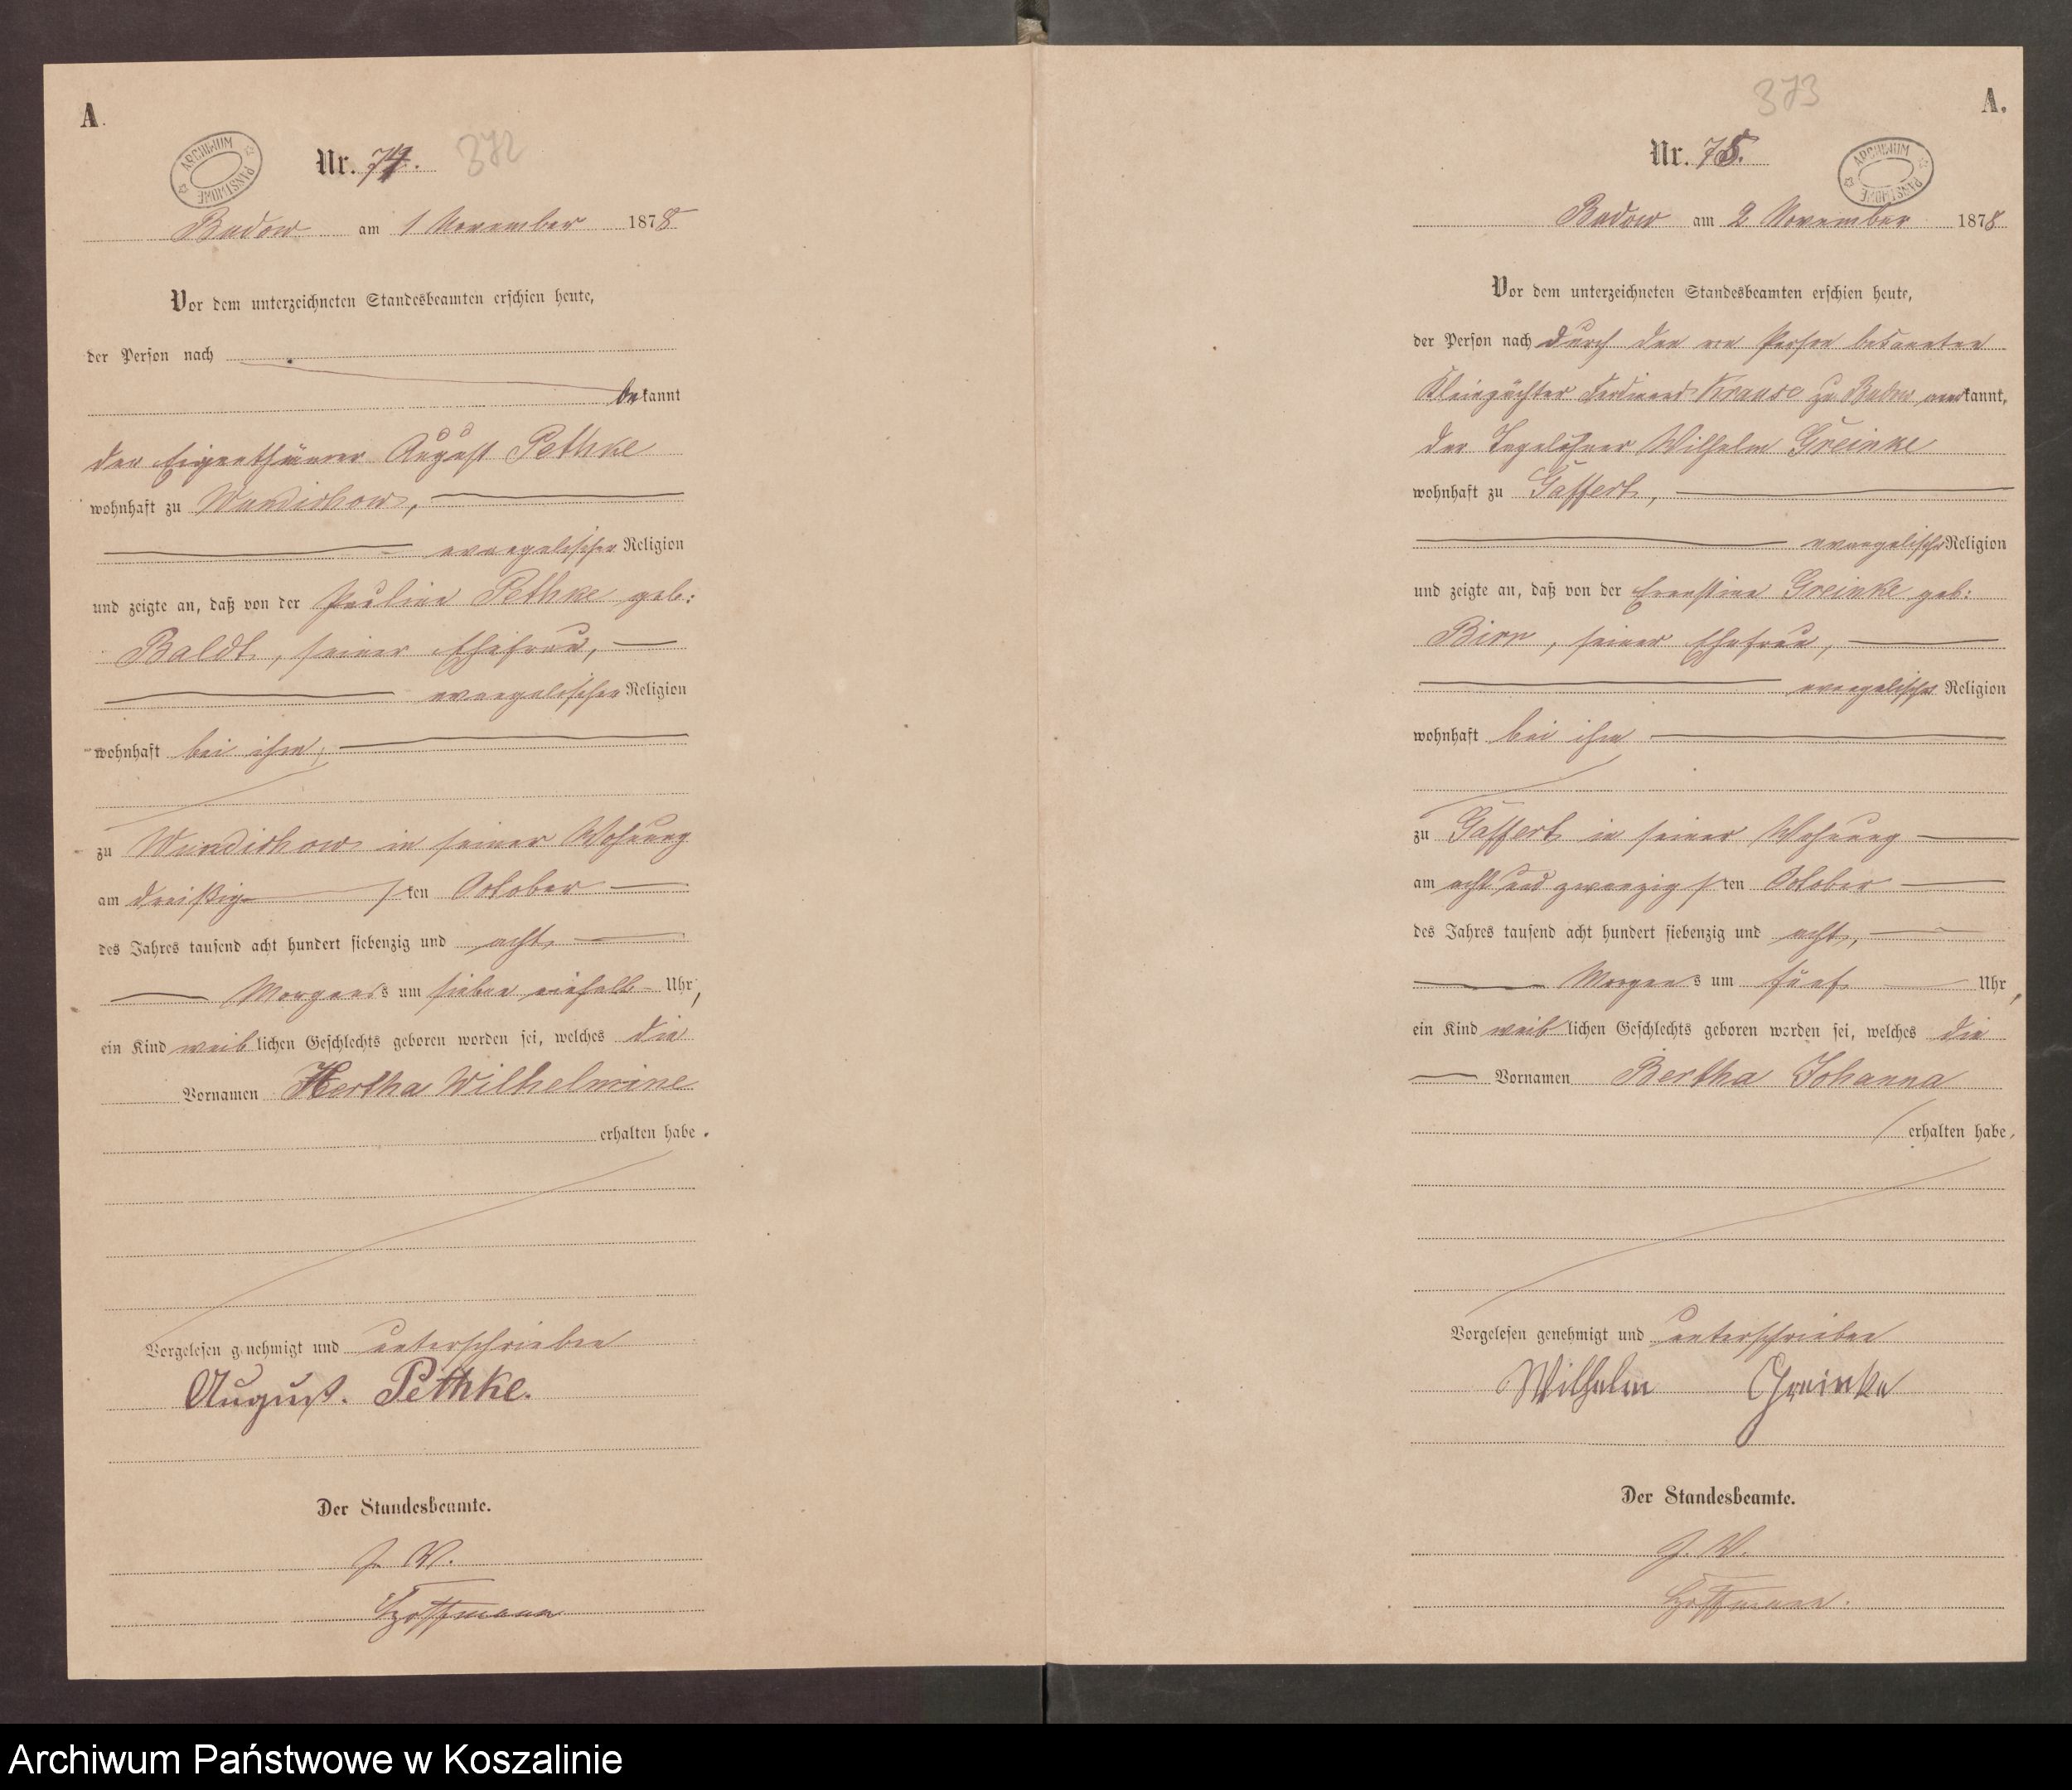 A.
ARCHIWUM PAŃSTWOWE
Nr. 74. 372
Budow am 1 November 1878
Vor dem unterzeichneten Standesbeamten erschien heute,
der Person nach
bekannt
der Eigenthümer August Pethke
wohnhaft zu Wundichow,
evangelischer Religion
und zeigte an, daß von der Pauline Pethke geb:
Baldt, seiner Ehefrau,
evangelischer Religion
wohnhaft bei ihm,
zu Wundichow in seiner Wohnung
am dreißigsten October
des Jahres tausend acht hundert siebenzig und acht,
Morgens um sieben einhalb Uhr,
ein Kind weiblichen Geschlechts geboren worden sei, welches die
Vornamen Hertha Wilhelmine
erhalten habe.
Vorgelesen genehmigt und unterschrieben
August. Pethke.
Der Standesbeamte.
J. V.
Hoffmann
373
A.
Nr. 75.
ARCHIWUM PAŃSTWOWE
Budow am 2 November 1878
Vor dem unterzeichneten Standesbeamten erschien heute,
der Person nach durch den von Person bekannten
Kleinpächter Ferdinand Krause zu Budow anerkannt,
der Tagelöhner Wilhelm Greinke
wohnhaft zu Gaffert,
evangelischer Religion
und zeigte an, daß von der Ernstine Greinke geb:
Birr, seiner Ehefrau,
evangelischer Religion
wohnhaft bei ihm
zu Gaffert in seiner Wohnung
am acht und zwanzigsten October
des Jahres tausend acht hundert siebenzig und acht,
Morgens um fünf Uhr,
ein Kind weiblichen Geschlechts geboren worden sei, welches die
Vornamen Bertha Johanna
erhalten habe.
Vorgelesen genehmigt und unterschrieben
Wilhelm Greinke
Der Standesbeamte.
J. V.
Hoffmann.
Archiwum Państwowe w Koszalinie